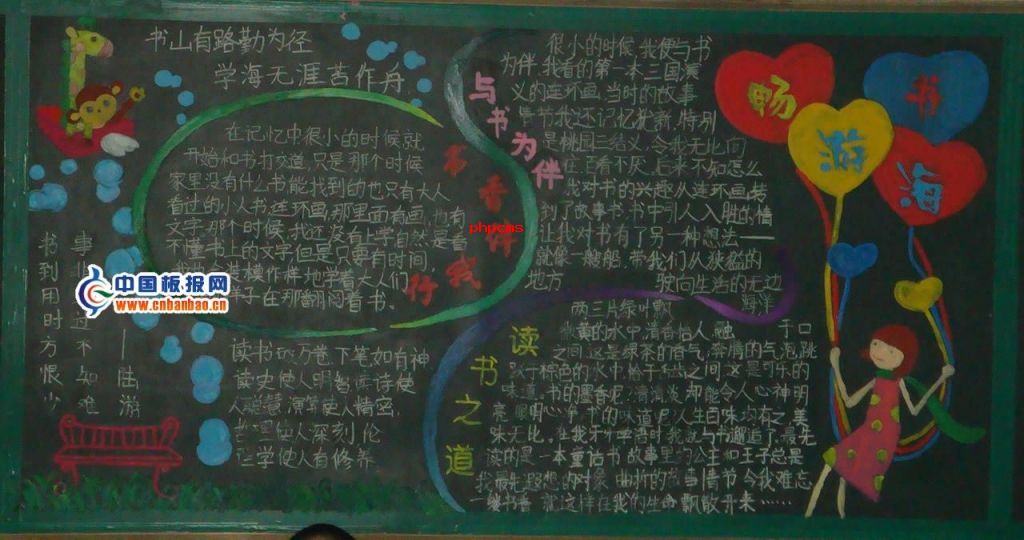 书山有路勤为径
学海无涯苦作舟
在记忆中很小的时候就
开始和书打交道,只是那个时候
家里没有什么书能找到的也只有大人
看过的小人书,连环画,那里面有画,也有
文字,那个时候,我还没有上学,自然是看
不懂书上的文字但是只要有时间,
模作样地学着大人们
子在那翻阅看书。
书香伴我行
phpcms
中国板报网
www.cnbanbao.cn
书到用时方恨少
事过不知难
读书破万卷下笔如有神
读史使人明智读诗使
人聪慧,演算使人精密,
哲理使人深刻伦
理学使人有修养
与书为伴
很小的时候,我便与书
为伴,我看的第一本三国演
义的连环画,当时的故事
情节我还记忆犹新,特别
是桃园三结义,令我无比向
往百看不厌,后来不知怎么
我对书的兴趣从连环画转
到了故事书,书中引人入胜的情
让我对书有了另一种想法——
就像一艘船,带我们从狭隘的
地方驶向生活的无边
海洋
读书之道
两三片绿叶飘
水中清香怡人,融于口
之间,这是绿茶的香气,奔腾的气泡跳
跃于棕色的水中给予之间,这是可乐的
味道。书的墨香呢?清清淡淡却能令人心神明
亮,书的味道呢?人生百味均有之,美
味无比。在我牙牙学语时,我就与书邂逅了,最先
读的是一本童话书,故事里的公主和王子总是
我最先想的对象,曲折的故事情节令我难忘
一缕书香就这样在我的生命飘散开来……
畅游书海